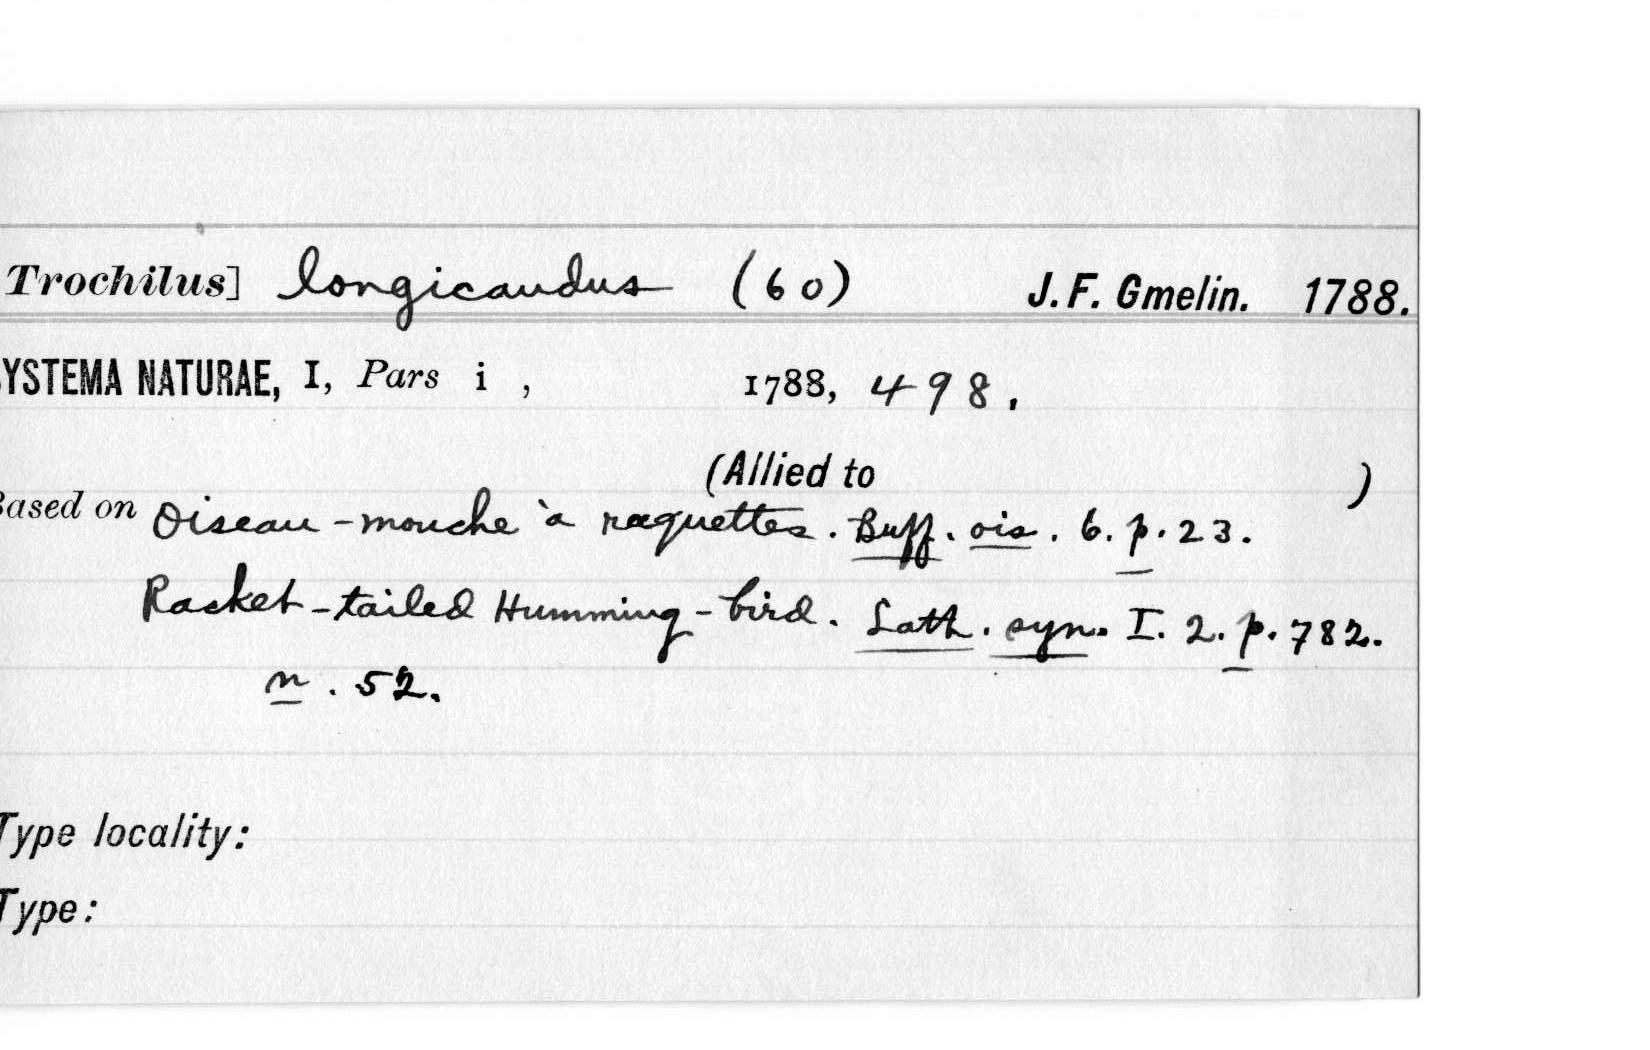 Trochilus] longicaudus (60) J. F. Gmelin. 1788.
YSTEMA NATURAE, I, Pars i , 1788, 498.
(Allied to )
Based on Oiseau-mouche à raquettes. Buff. ois. 6. p. 23.
Racket-tailed Humming-bird. Lath. syn. I. 2. p. 782.
n. 52.
Type locality:
Type: